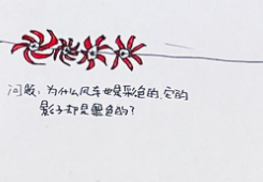 问题：为什么风车也是彩色的，它的
影子却是黑色的？